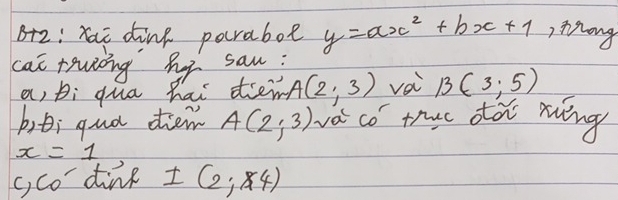 BT2: Xác định parabol y=ax² + bx + 1, trong
các trường hợp sau:
a, Đi qua hai điểm A(2; 3) và B(3; 5)
b, Đi qua điểm A(2; 3) và có trục đối xứng
x = 1
c, Có đỉnh I (2; 4)